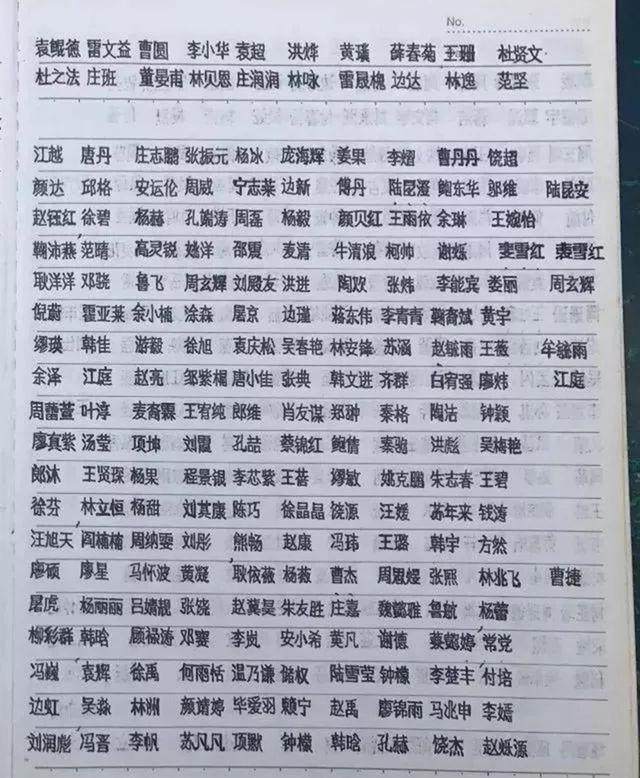 No.
袁鲲德 雷文益 曹圆 李小华 袁超 洪烨 黄瑞 薛春菊 王珊 杜贤文
杜之法 庄班 董晏甫 林贝恩 庄润润 林咏 雷晟槐 边达 林逸 范坚
江越 唐丹 庄志鹏 张振元 杨冰 庞海辉 姜果 李熠 曹丹丹 饶超
颜达 邱格 安运伦 周威 宁志莱 边新 傅丹 陆昆滢 鞠东华 邬维 陆昆安
赵钰红 徐碧 杨赫 孔端涛 周磊 杨毅 颜贝红 王雨依 余琳 王婉怡
鞠沛燕 范晴 高灵锐 姚洋 邵震 麦清 牛清浪 柯帅 谢烁 裴雪红 裴雪红
耿洋洋 邓骁 鲁飞 周玄辉 刘殿友 洪进 陶欢 张炜 李能宾 娄丽 周玄辉
倪蔚 霍亚莱 余小楠 涂淼 屠京 边瑾 蒋东伟 李青青 鞠育斌 黄宇
缪瑛 韩佳 游毅 徐旭 袁庆松 吴春艳 林安锋 苏涵 赵毓雨 王薇 牟毓雨
余泽 江庭 赵亮 邹紫楣 唐小佳 张典 韩文进 齐群 白宥强 廖炜 江庭
周蕾萱 叶淳 麦裔霖 王宥纯 郎维 肖友谋 郑翀 秦格 陶洁 钟颖
廖真紫 汤莹 项坤 刘霞 孔喆 蔡锦红 鲍倩 秦驰 洪彪 吴梅艳
郎沐 王贤琛 杨果 程景银 李芯紫 王蓓 缪敏 姚克鹏 朱志春 王碧
徐芬 林立恒 杨甜 刘其康 陈巧 徐晶晶 饶源 汪媛 苏年来 钱涛
汪旭天 阎楠楠 周纳雯 刘彤 熊畅 赵康 冯玮 王璐 韩宇 方然
廖硕 廖星 马怀波 黄凝 耿依薇 杨薇 曹杰 周思媛 张熙 林兆飞 曹捷
屠虎 杨丽丽 吕嫡靓 张饶 赵冀昊 朱友胜 庄嘉 魏懿雅 鲁航 杨蕾
柳彩群 韩晗 顾禄涛 邓赛 李岚 安小希 莫凡 谢德 蔡懿婷 常党
冯巍 袁辉 徐禹 何雨恬 温乃谦 储权 陆雪莹 钟檬 李楚丰 付培
边虹 吴淼 林洲 颜靖婷 毕爱羽 赖宁 赵禹 廖锦雨 马兆申 李嫣
刘润彪 冯晋 李帆 苏凡凡 项默 钟檬 韩晗 孔赫 饶杰 赵烁源